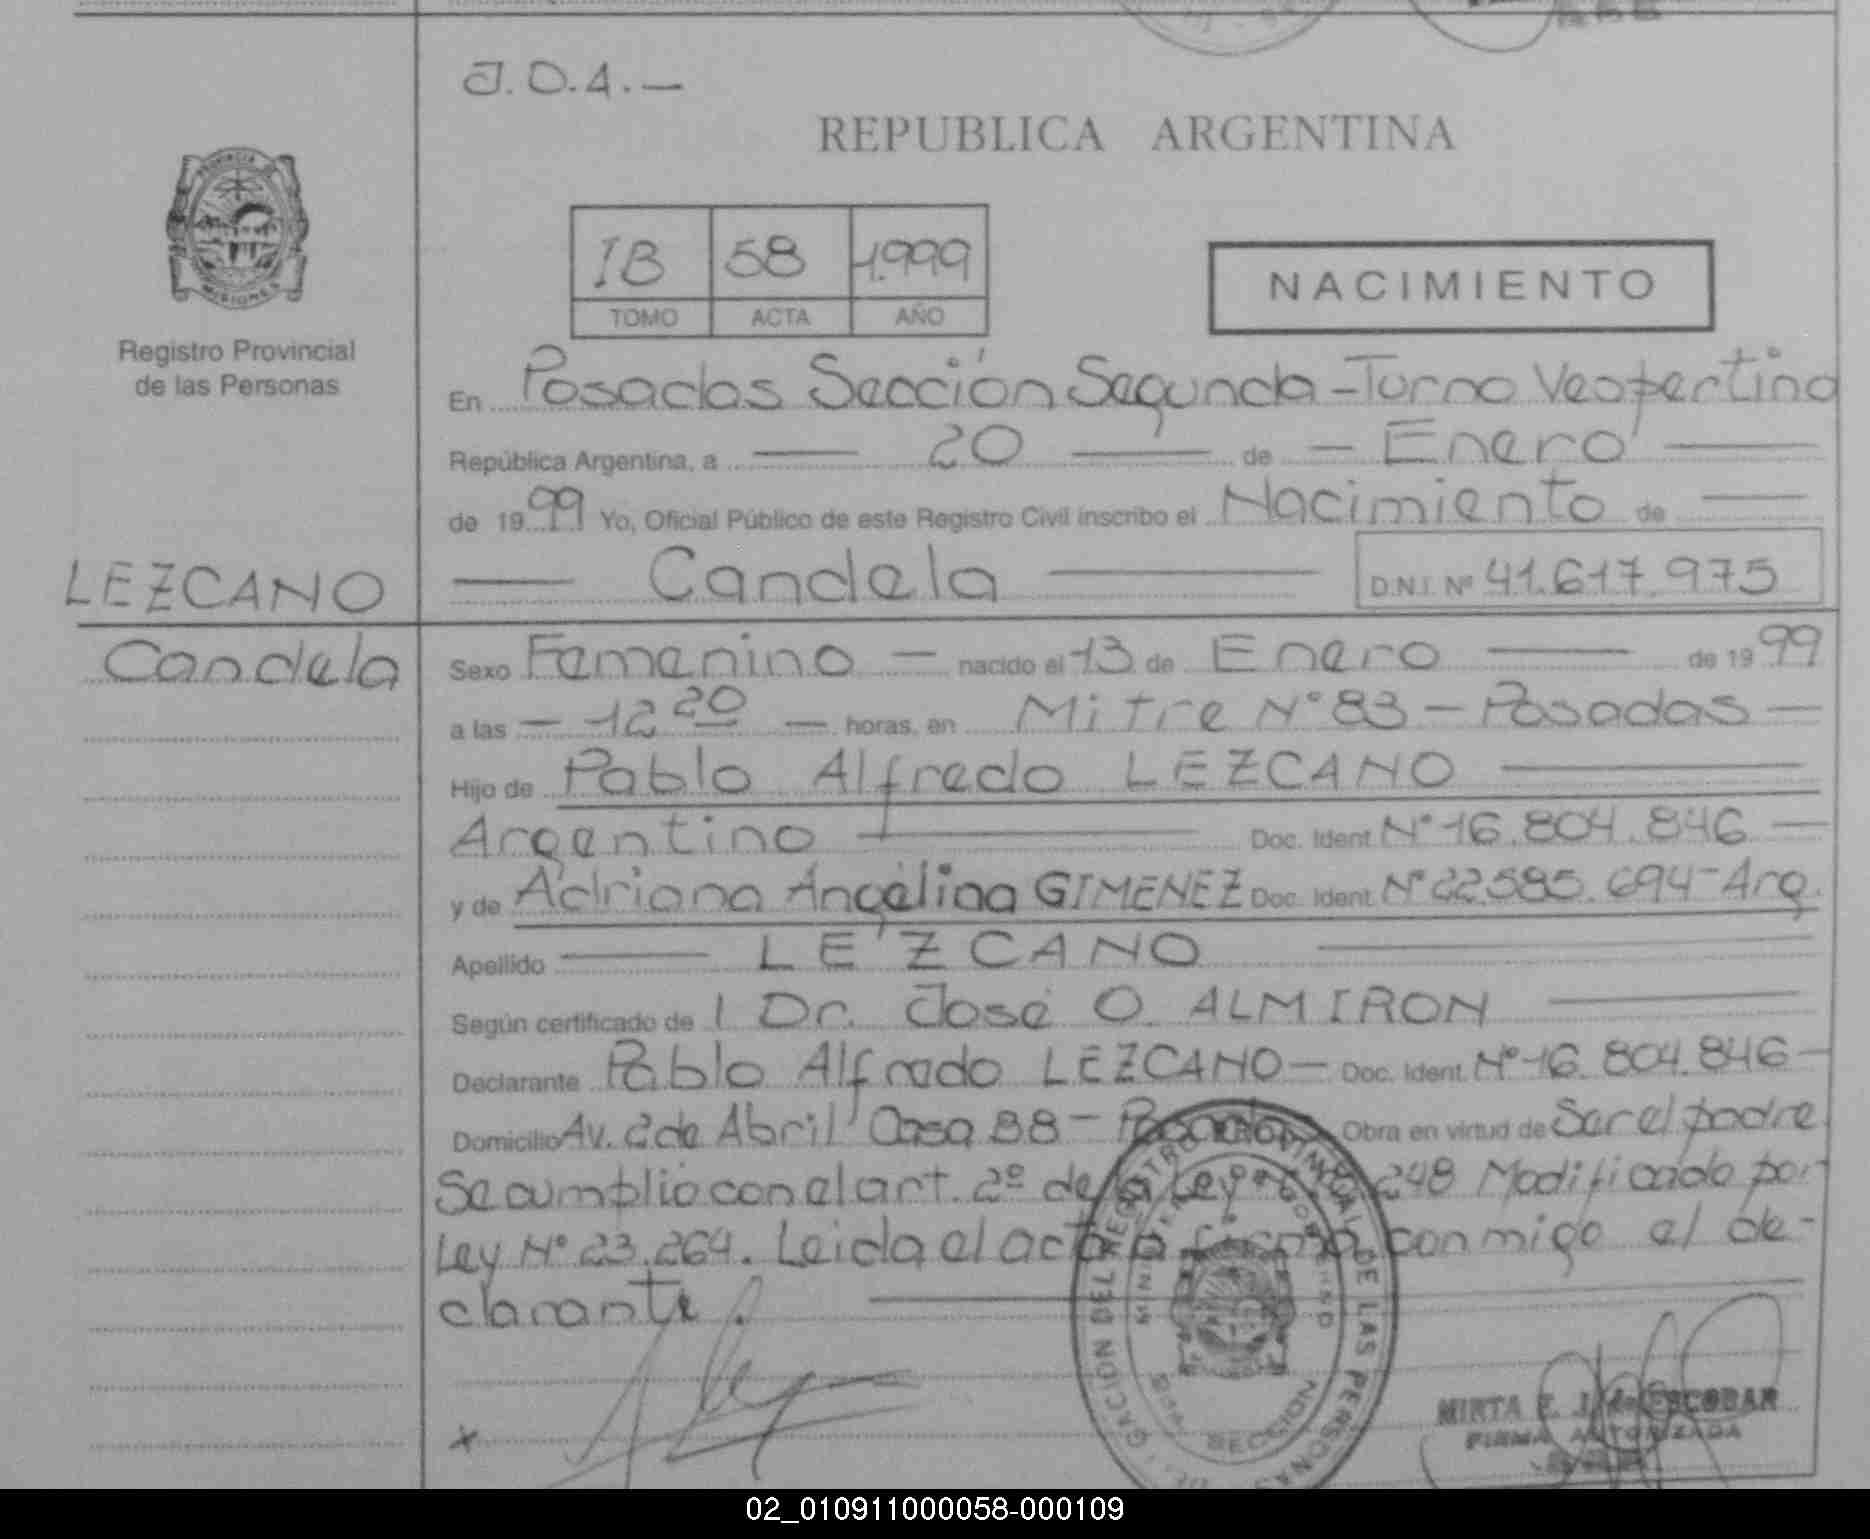 J.O.A.—
REPUBLICA ARGENTINA
PROVINCIA DE
MISIONES
Registro Provincial
de las Personas
IB 58 1.999
TOMO ACTA AÑO
NACIMIENTO
En Posadas Sección Segunda - Turno Vespertino
República Argentina, a — 20 — de — Enero —
de 1999 Yo, Oficial Público de este Registro Civil inscribo el Nacimiento de —
— Candela — D.N.I. Nº 41.617.975
LEZCANO
Candela
Sexo Femenino — nacido el 13 de Enero — de 1999
a las — 12 20 — horas, en Mitre Nº 83 — Posadas —
Hijo de Pablo Alfredo LEZCANO —
Argentino — Doc. Ident. Nº 16.804.846 —
y de Adriana Angélina GIMENEZ Doc. Ident. Nº 22.585.694 - Arg.
Apellido — LEZCANO —
Según certificado de 1 Dr. José O. ALMIRON —
Declarante Pablo Alfredo LEZCANO — Doc. Ident. Nº 16.804.846 —
Domicilio Av. 2 de Abril Casa 88 — Posadas Obra en virtud de Ser el padre
Se cumplió con el art. 2º de la Ley 248 Modificado por
Ley Nº 23.264. Leida el acta firma conmigo el de-
clarante.
DEL REGISTRO PROVINCIAL DE LAS PERSONAS
SECCION
x
MIRTA E. J. de ESCOBAR
FIRMA AUTORIZADA
02_010911000058-000109